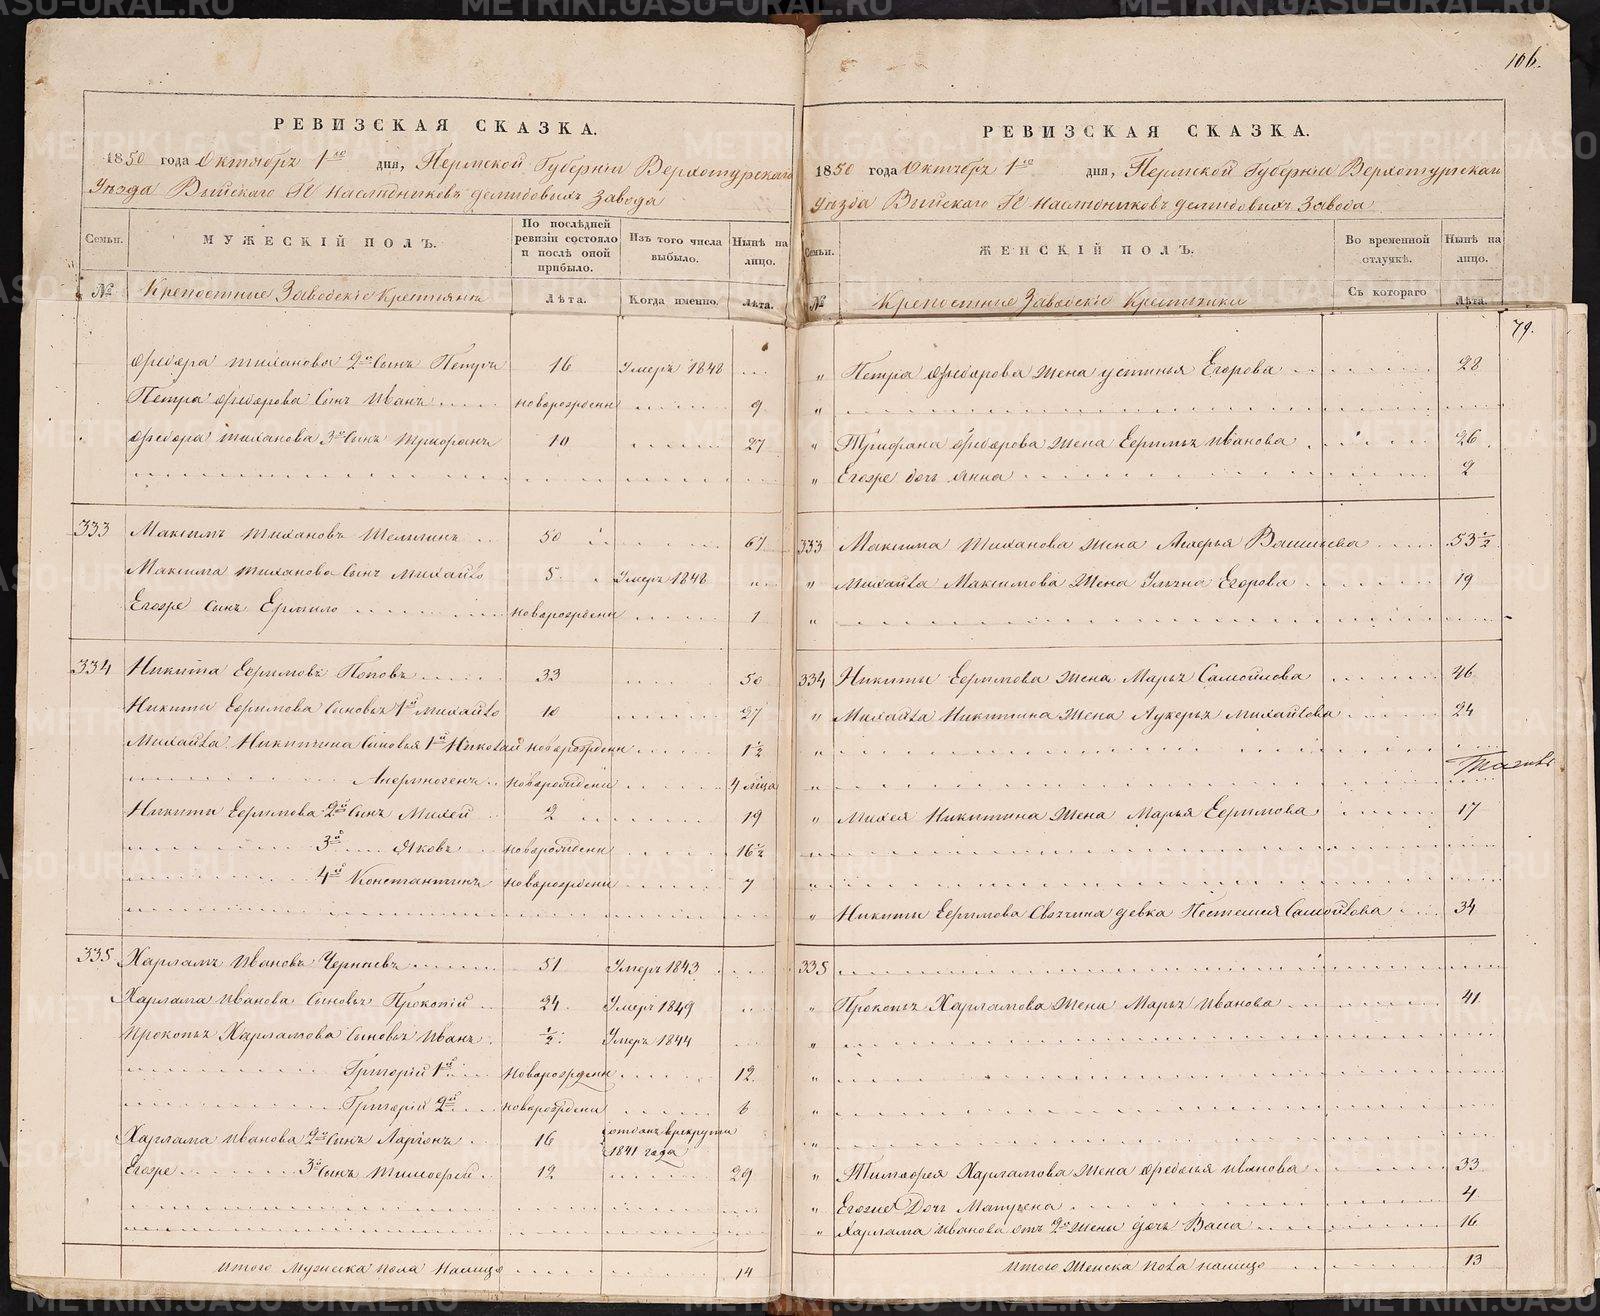 106.
РЕВИЗСКАЯ СКАЗКА.
1850 года Октября 1го дня, Пермской Губернiи Верхотурскаго
Уѣзда Выйскаго Гг Наслѣдниковъ Демидовыхъ Завода
Семьи. МУЖЕСКIЙ ПОЛЪ. По послѣдней ревизiи состояло и послѣ оной прибыло. Изъ того числа выбыло. Нынѣ на лицо.
№ Крепостные Заводскiе Крестьяна Лѣта. Когда именно. Лѣта.
Федора Тиханова 2й Сынъ Петръ 16 Умеръ 1848
Петра Федорова Сынъ Иванъ новорожденн 9
Федора Тиханова 3й Сынъ Трифанъ 10 27
333 Максимъ Тихановъ 50 67
Максима Тиханова Сынъ Михайло 5 Умеръ 1848 "
Егоже Сынъ Ермило новорожденн 1
334 Никита Ефимовъ Поповъ 33 50
Никиты Ефимова Сыновья 1й Михайло 10 27
Михайла Никитина Сыновья 1й Николай новорожденн 1½
новорожденн 4 мѣца
Никиты Ефимова 2й Сынъ Михей 2 19
3й Яковъ новорожденн 16½
4й Константинъ новорожденн 7
335 Харламъ Ивановъ 51 Умеръ 1843
Харлама Иванова Сыновья Прокопiй 24 Умеръ 1849
Прокопья Харламова Сыновья Иванъ ½ Умеръ 1844
Григорiй 1й новорожденн 12
Григорiй 2й новорожденн 6
Харлама Иванова 2й Сынъ Ларiонъ 16 отданъ в рекруты 1841 года
Егоже 3й Сынъ Тимофей 12 29
Итого Мужеска пола налицо 14
РЕВИЗСКАЯ СКАЗКА.
1850 года Октября 1го дня, Пермской Губернiи Верхотурскаго
Уѣзда Выйскаго Гг Наслѣдниковъ Демидовыхъ Завода
Семьи. ЖЕНСКIЙ ПОЛЪ. Во временной отлучкѣ. Нынѣ на лицо.
№ Крепостные Заводскiе Крестьянки Съ котораго Лѣта.
79.
" Петра Федорова жена Устинья Егорова 28
"
" Трифана Федорова жена Ефимья Иванова 26
" Егоже дочь Анна 2
333 Максима Тиханова жена 53½
" Михайла Максимова жена Егорова 19
"
334 Никиты Ефимова жена Марья Самойлова 46
" Михайла Никитина жена Лукерья Михайлова 24
"
"
" Михея Никитина жена Марья Ефимова 17
"
"
" Никиты Ефимова девка Самойлова 34
335
" Прокопья Харламова жена Марья Иванова 41
"
"
"
"
" Тимофея Харламова жена Федосья Иванова 33
" Егоже Дочь Матрена 4
" Харлама Иванова отъ 2й жены дочь Васа 16
Итого Женска пола налицо 13
METRIKI.GASO-URAL.RU